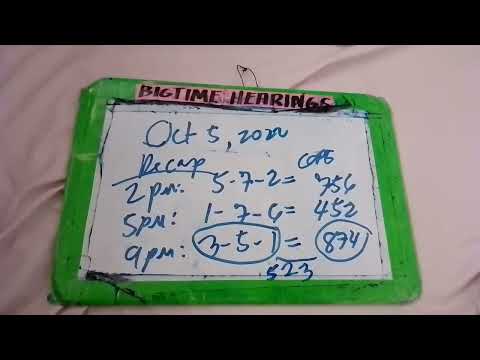 BIGTIME HEARINGS
Oct 5, 2022
Recap
2pm: 5-7-2 = 756
5pm: 1-7-6 = 452
9pm: 3-5-1 = 874
523